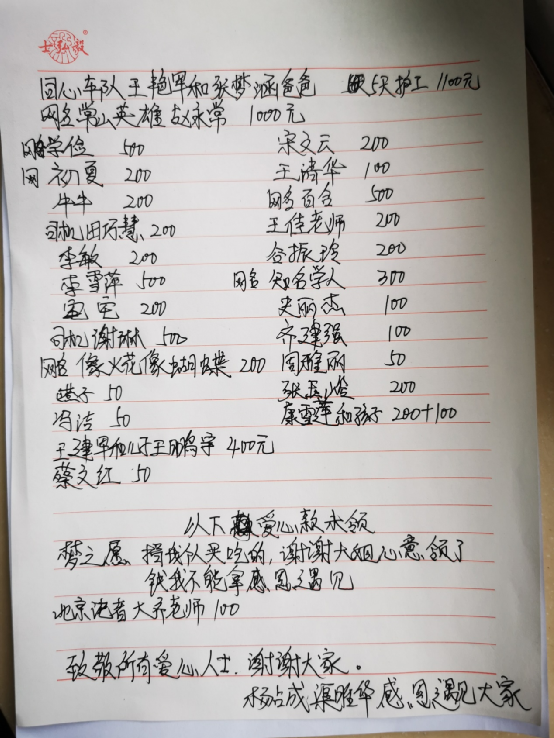 同心车队王艳军和张梦涵爸爸 5天护工1100元
网名常山英雄赵永常 1000元
网名学俭 500 宋文云 200
网 初夏 200 王清华 100
牛牛 200 网名百合 500
司机田巧慧 200 王佳老师 200
李敏 200 谷振玲 200
李雪萍 500 网名 知名学人 300
200 史丽杰 100
司机谢琳 500 齐建强 100
网名像火花像蝴蝶 200 周雅丽 50
50 200
冯洁 50 康雪莲和孩子 200+100
王建军和儿子王鹏宇 400元
蔡文红 50
以下 爱心款未领
梦之愿 给我们买吃的,谢谢大姐心意领了
钱我不能拿感恩遇见
北京记者大齐老师 100
致敬所有爱心人士.谢谢大家。
杨占成 渠雅华 感恩遇见大家